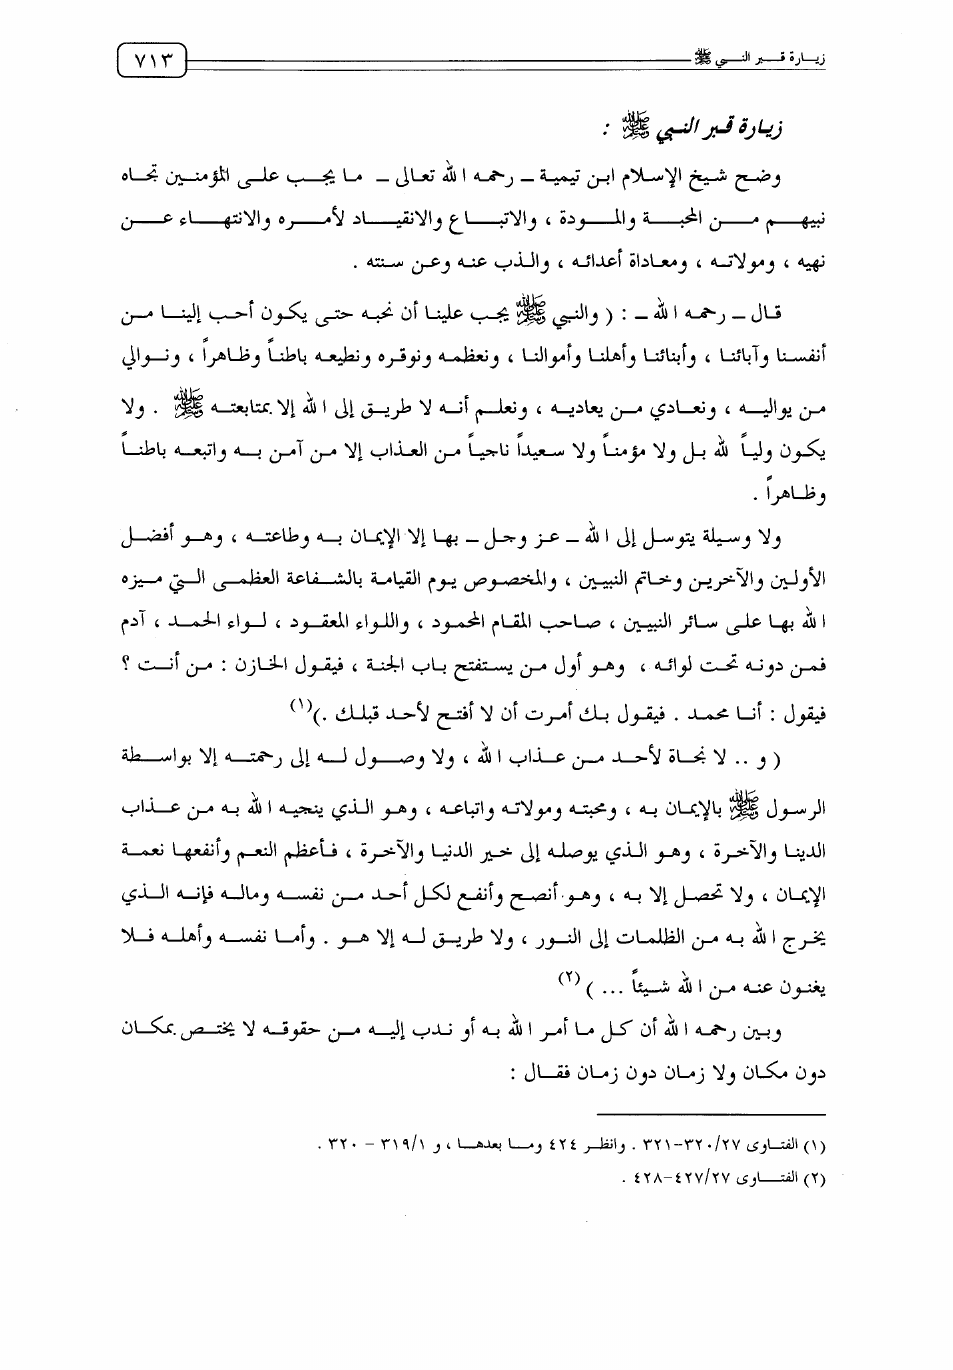 زيارة قبر النبي ﷺ ٧١٣
زيارة قبر النبي ﷺ :
وضح شيخ الإسلام ابن تيمية – رحمه الله تعالى – ما يجب على المؤمنين تجاه
نبيهم من المحبة والمودة ، والاتباع والانقياد لأمره والانتهاء عن
نهيه ، ومولاته ، ومعاداة أعدائه ، والذب عنه وعن سنته .
قال – رحمه الله – : ( والنبي ﷺ يجب علينا أن نحبه حتى يكون أحب إلينا من
أنفسنا وآبائنا ، وأبنائنا وأهلنا وأموالنا ، ونعظمه ونوقره ونطيعه باطناً وظاهراً ، ونوالي
من يواليه ، ونعادي من يعاديه ، ونعلم أنه لا طريق إلى الله إلا بمتابعته ﷺ . ولا
يكون ولياً لله بل ولا مؤمناً ولا سعيداً ناجياً من العذاب إلا من آمن به واتبعه باطناً
وظاهراً .
ولا وسيلة يتوسل إلى الله – عز وجل – بها إلا الإيمان به وطاعته ، وهو أفضل
الأولين والآخرين وخاتم النبيين ، والمخصوص يوم القيامة بالشفاعة العظمى التي ميزه
الله بها على سائر النبيين ، صاحب المقام المحمود ، واللواء المعقود ، لواء الحمد ، آدم
فمن دونه تحت لوائه ، وهو أول من يستفتح باب الجنة ، فيقول الخازن : من أنت ؟
فيقول : أنا محمد . فيقول بك أمرت أن لا أفتح لأحد قبلك .)(١)
( و .. لا نجاة لأحد من عذاب الله ، ولا وصول له إلى رحمته إلا بواسطة
الرسول ﷺ بالإيمان به ، ومحبته ومولاته واتباعه ، وهو الذي ينجيه الله به من عذاب
الدينا والآخرة ، وهو الذي يوصله إلى خير الدنيا والآخرة ، فأعظم النعم وأنفعها نعمة
الإيمان ، ولا تحصل إلا به ، وهو أنصح وأنفع لكل أحد من نفسه وماله فإنه الذي
يخرج الله به من الظلمات إلى النور ، ولا طريق له إلا هو . وأما نفسه وأهله فلا
يغنون عنه من الله شيئاً ... )(٢)
وبين رحمه الله أن كل ما أمر الله به أو ندب إليه من حقوقه لا يختص بمكان
دون مكان ولا زمان دون زمان فقال :
(١) الفتاوى ٣٢٠/٢٧–٣٢١ . وانظر ٤٢٤ وما بعدها ، و ٣١٩/١ – ٣٢٠ .
(٢) الفتاوى ٤٢٧/٢٧–٤٢٨ .